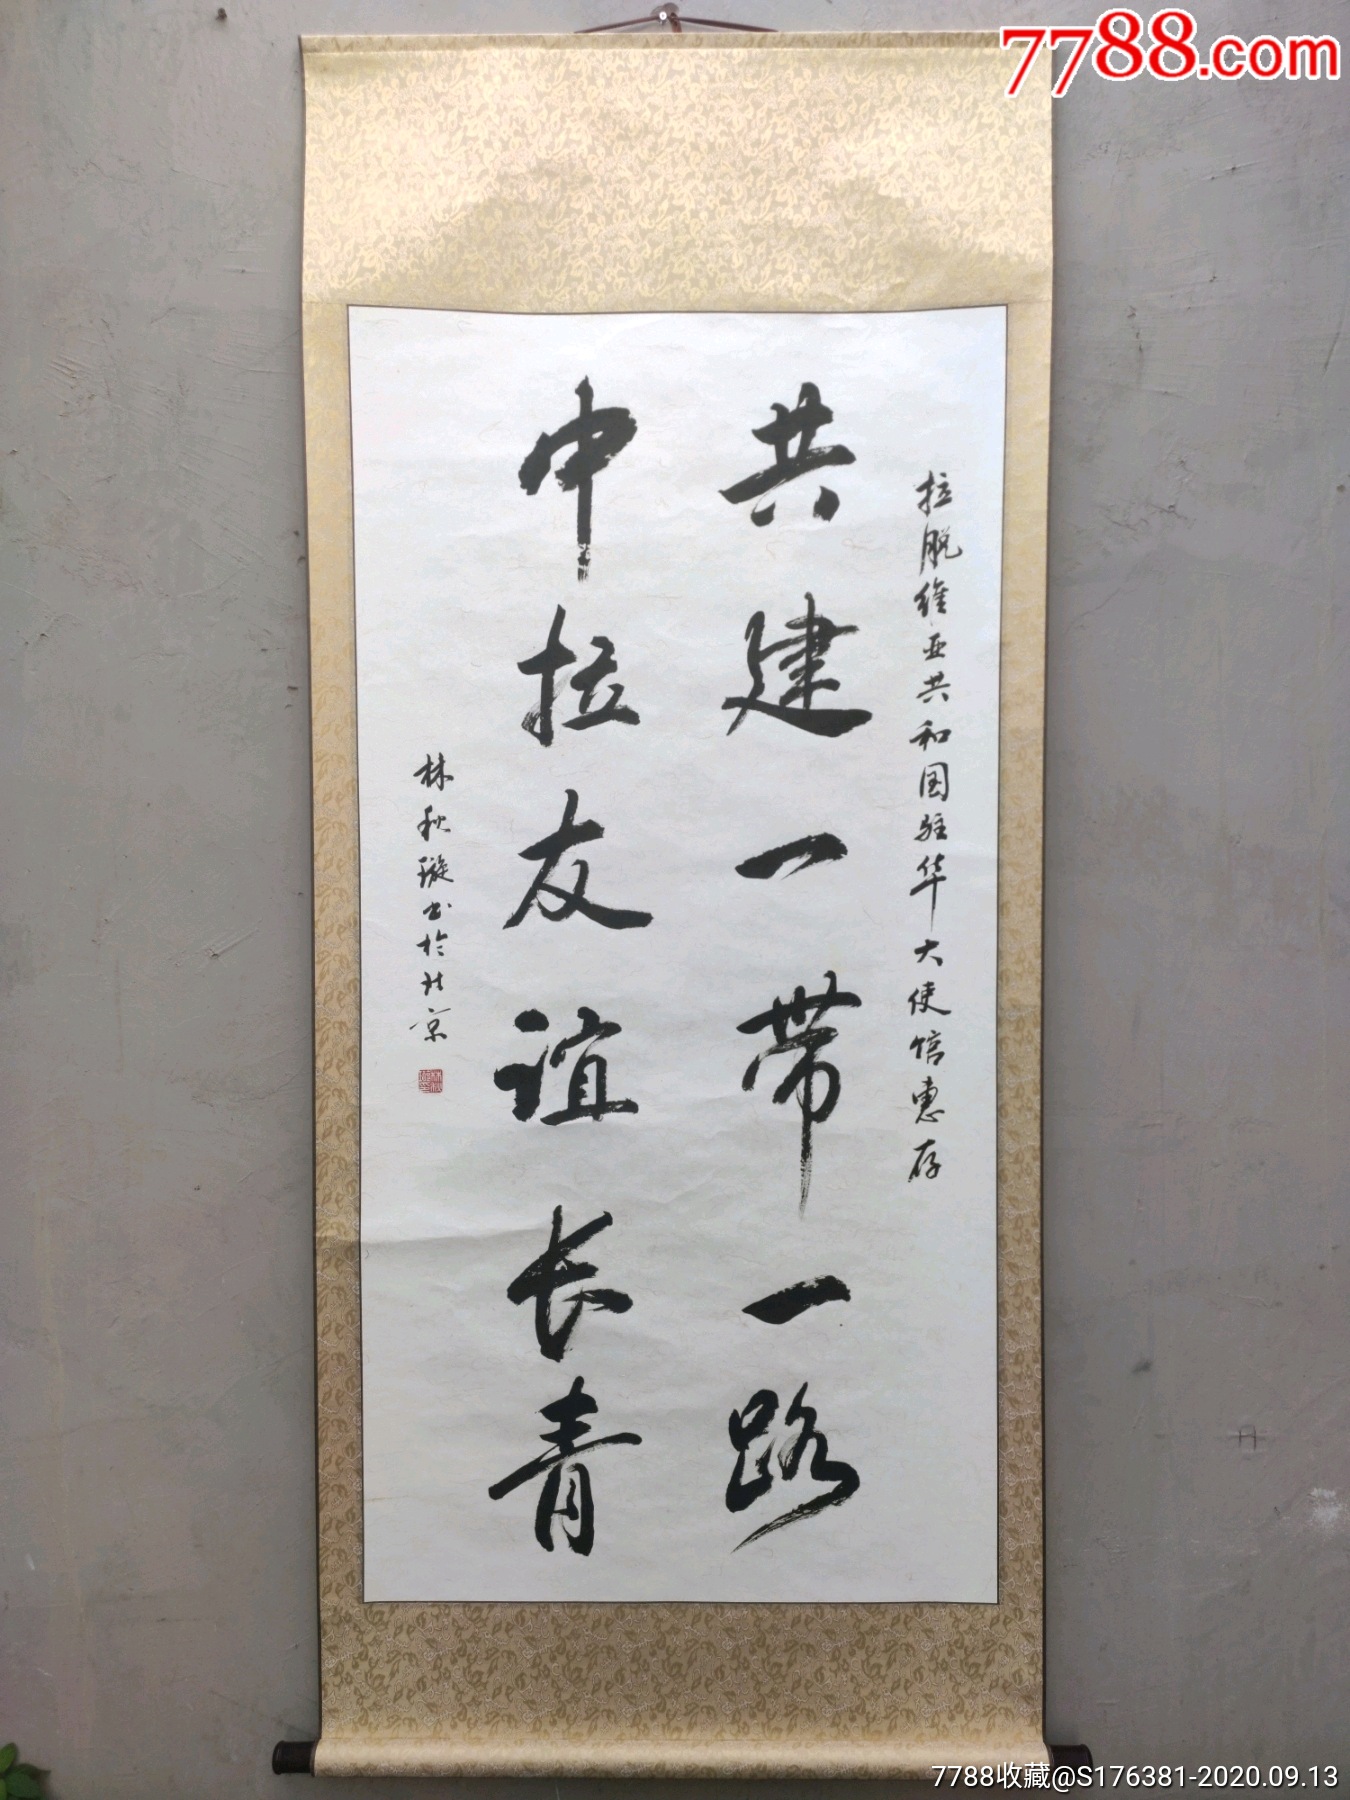 7788.com
拉脱维亚共和国驻华大使馆惠存
共建一带一路
中拉友谊长青
林秋璇书於北京
7788收藏@S176381-2020.09.13